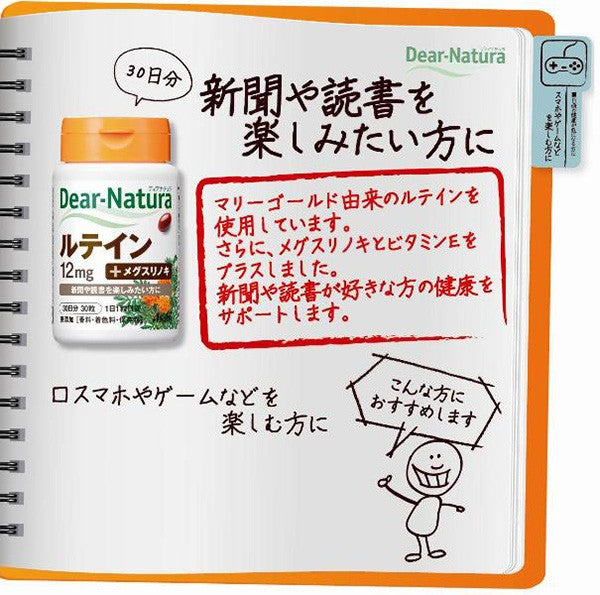 Dear-Natura
30日分
新聞や読書を
楽しみたい方に
スマホやゲームなど
を楽しむ方に
Dear-Natura
ルテイン
12mg
+メグスリノキ
新聞や読書を楽しみたい方に
30日分 30粒
1日1粒
無添加
マリーゴールド由来のルテインを
使用しています。
さらに、メグスリノキとビタミンEを
プラスしました。
新聞や読書が好きな方の健康を
サポートします。
□スマホやゲームなどを
楽しむ方に
こんな方に
おすすめします